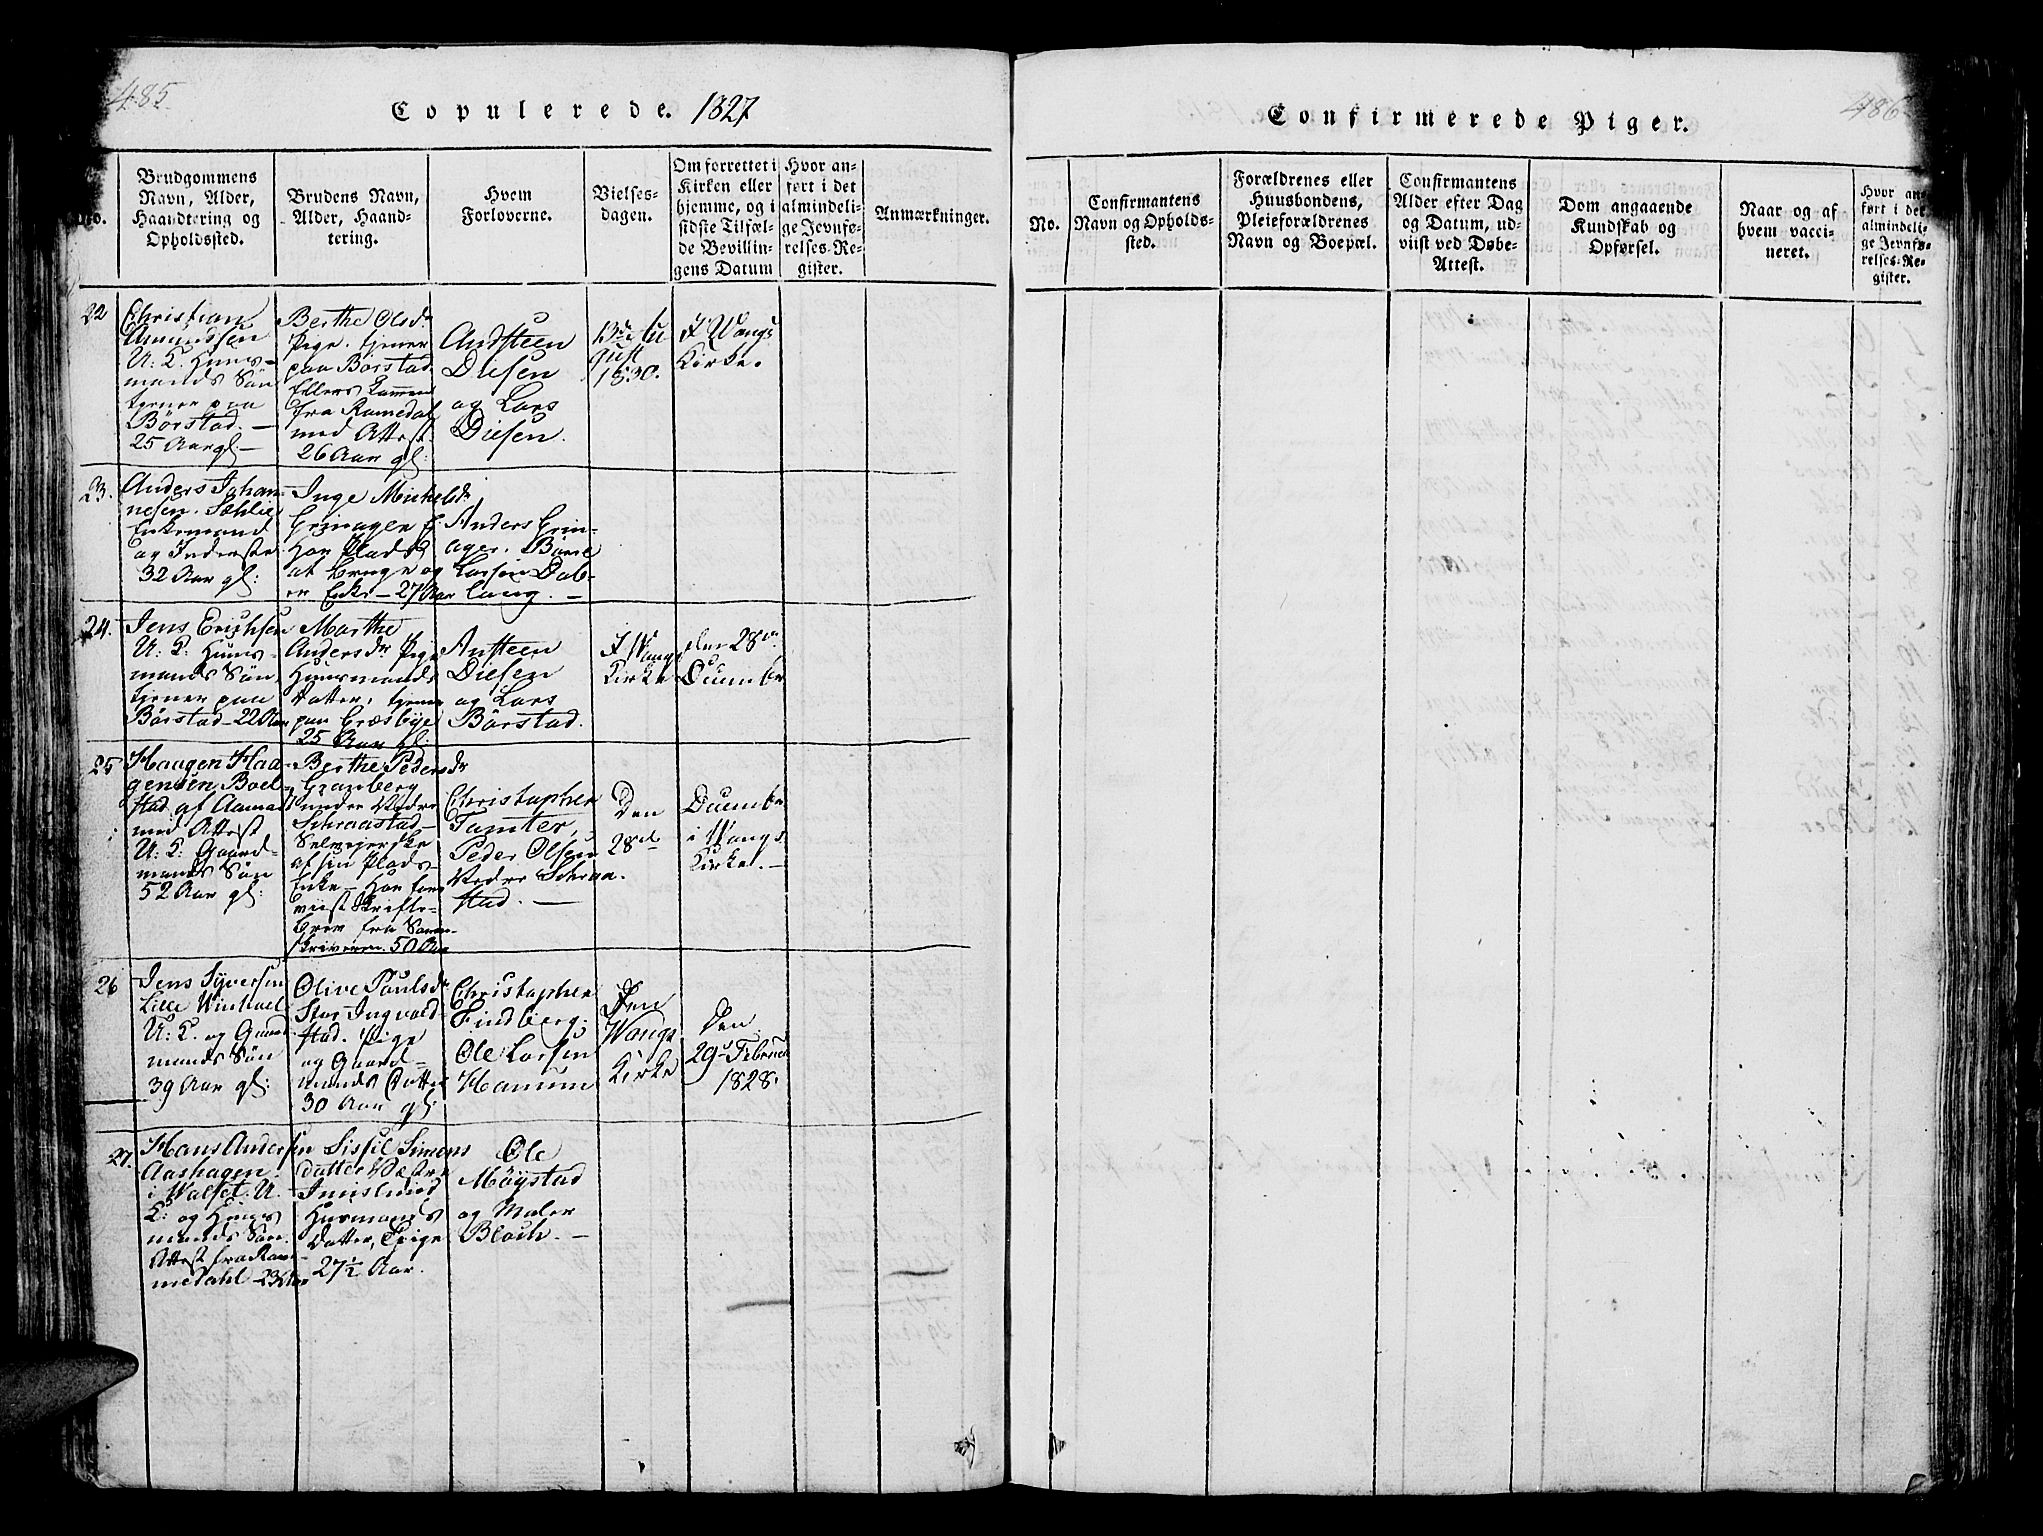 485
Copulerede. 1827
No.
Brudgommens
Navn, Alder,
Haandtering og
Opholdssted.
Brudens Navn,
Alder, Haand-
tering.
Hvem
Forloverne.
Vielses-
dagen.
Om forrettet i
Kirken eller
hjemme, og i
sidste Tilfæl-
de Bevillin-
gens Datum
Hvor an-
ført i det
almindeli-
ge Jevnfø-
relses-Re-
gister.
Anmærkninger.
22
Christian
Amundsen
U: K. Huus-
mands Søn
tjener paa
Börstad. -
25 Aar gl: -
Berthe Olsdr
Pige. tjener
paa Börstad
Ellers kommen
fra Romedal
med Attest.
26 Aar gl:
Andsteen
Diesen
og Lars
Diesen.
13de Au
gust
1830.
I Wangs
Kirke.
23.
Anders Johan-
nesen. Sæhlie
Enkemand
og Inderste
32 Aar gl:
Inge Mickelsdr
Grinagen E.
Har Plads
at bruge og
er Enke - 27 Aar
Anders Grin-
ager. Baard
Larsen Dob-
lang. -
24.
Jens Erichsen
U: K: Huus-
mands Søn,
tjener paa
Börstad - 22 Aar
Marthe
Andersdr Pige
Huusmands
Datter, tjener
paa Græsbye
25 Aar gl:
Ansteen
Diesen
og Lars
Börstad.
I Wangs
Kirke
den 28de
Decembr
25
Haagen Haa-
gensen Boel-
stad af Aamot
med Attest
U: K: Gaard-
mands Søn
52 Aar gl:
Berthe Pedersdr
Granberg
under Vedre
Schraastad -
Selvejerske
af sin Plads
Enke - Har fore
viist Skifte-
brev fra Soren-
skriveren. 50 Aar
Christopher
Tomter,
Peder Olsen
Vedre Schraa-
stad. -
Den
28de
Decembr
i Wangs
Kirke. -
26
Jens Syversen
Lille Winduel
U: K. og Gaard
mands Søn
39 Aar gl:
Olive Paulsdr
Stor Ingvald-
stad. Pige
og Gaard-
mands Datter
30 Aar gl:
Christopher
Findberg;
Ole Larsen
Hanum
Wangs
Kirke
Den
29de Februar
1828.
27.
Hans Andersen
Aashagen
i Walset. U.
K: og Huus
mands Søn.
Attest fra Rom-
medahl - 23 Aar
Sissil Simens
datter Vestre
Imislund
Husmands
Datter, Pige
27½ Aar.
Ole
Möystad
og Maler
Bloch. -
486
Confirmerede Piger.
No.
Confirmantens
Navn og Opholds-
sted.
Forældrenes eller
Huusbondens,
Pleieforældrenes
Navn og Boepæl.
Confirmantens
Alder efter Dag
og Datum, ud-
viist ved Døbe-
Attest.
Dom angaaende
Kundskab og
Opførsel.
Naar og af
hvem vacci-
neret.
Hvor an-
ført i det
almindeli-
ge Jevnfø-
relses-Re-
gister.